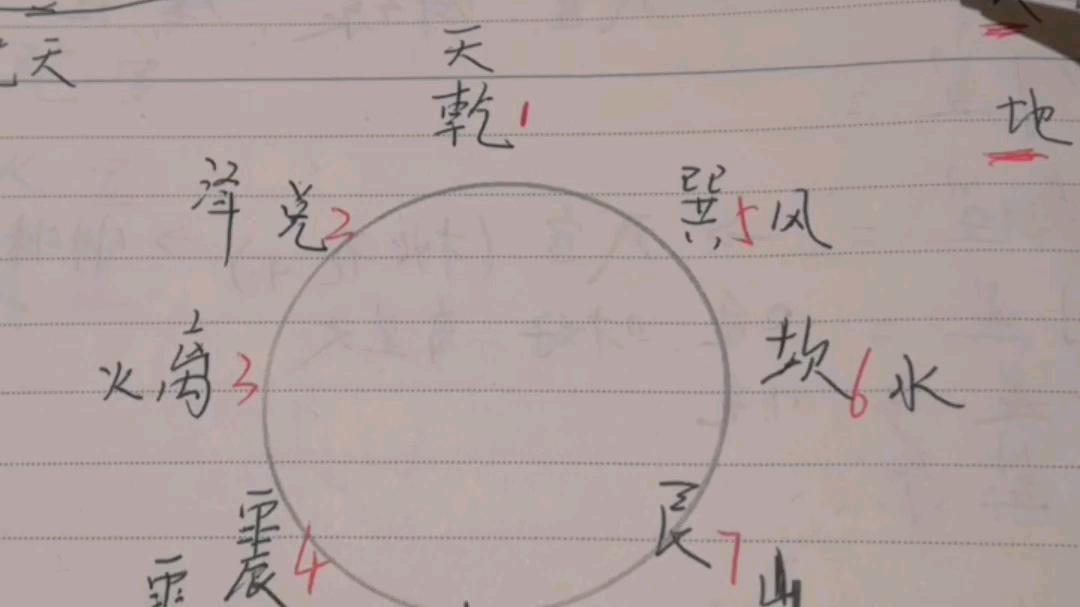 天
天
乾1
地
泽 兑2
巽5风
火离3
坎6水
震4
艮7
山